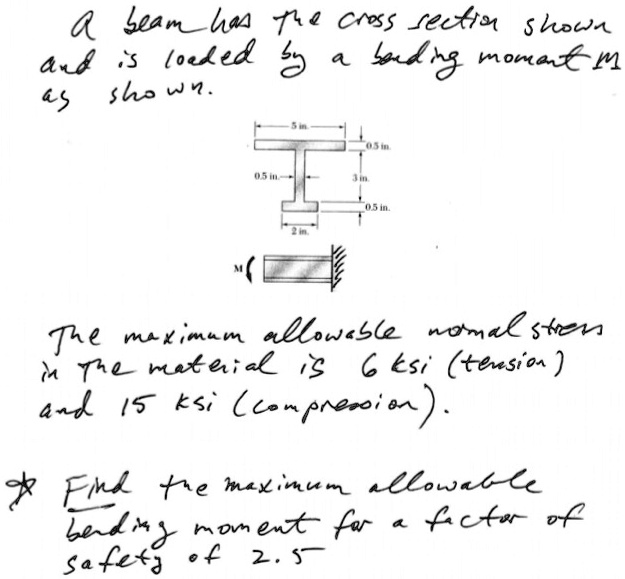 A beam has the cross section shown
and is loaded by a bending moment M
as shown.
5 in.
0.5 in.
0.5 in.
3 in.
0.5 in.
2 in.
M
The maximum allowable normal stress
in the material is 6 ksi (tension)
and 15 ksi (compression).
* Find the maximum allowable
bending moment for a factor of
safety of 2.5